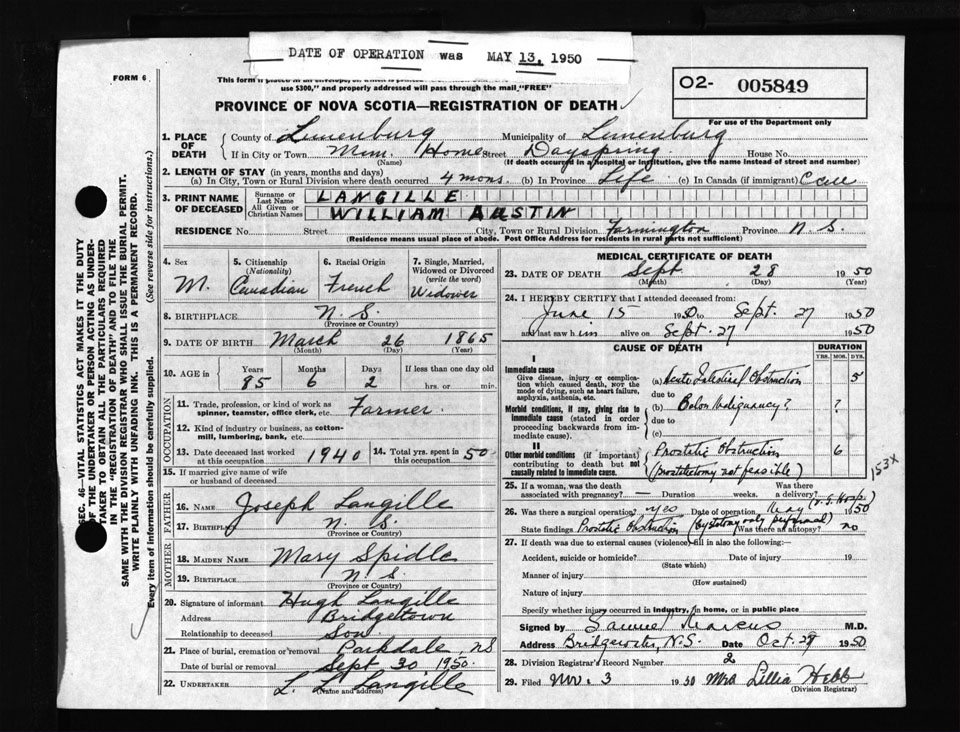 DATE OF OPERATION was MAY 13, 1950
FORM 6.
This form if placed in an envelope,
use $300," and properly addressed will pass through the mail "FREE"
O2- 005849
For use of the Department only
PROVINCE OF NOVA SCOTIA—REGISTRATION OF DEATH
SEC. 46—VITAL STATISTICS ACT MAKES IT THE DUTY
OF THE UNDERTAKER OR PERSON ACTING AS UNDER-
TAKER TO OBTAIN ALL THE PARTICULARS REQUIRED
IN THE "REGISTRATION OF DEATH" AND TO FILE THE
SAME WITH THE DIVISION REGISTRAR WHO SHALL ISSUE THE BURIAL PERMIT.
WRITE PLAINLY WITH UNFADING INK. THIS IS A PERMANENT RECORD.
Every item of information should be carefully supplied. (See reverse side for instructions.)
1. PLACE OF DEATH County of Lunenburg Municipality of Lunenburg
If in City or Town Mem. Home Street Dayspring House No.
(Name) (If death occurred in a hospital or institution, give the name instead of street and number)
2. LENGTH OF STAY (in years, months and days)
(a) In City, Town or Rural Division where death occurred 4 mons. (b) In Province Life (c) In Canada (if immigrant)
3. PRINT NAME OF DECEASED Surname or Last Name LANGILLE
All Given or Christian Names WILLIAM AUSTIN
RESIDENCE No. Street City, Town or Rural Division Farmington Province N.S.
(Residence means usual place of abode. Post Office Address for residents in rural parts not sufficient)
4. Sex 5. Citizenship (Nationality) 6. Racial Origin 7. Single, Married, Widowed or Divorced (write the word)
M. Canadian French Widower
8. BIRTHPLACE N.S.
(Province or Country)
9. DATE OF BIRTH March 26 1865
(Month) (Day) (Year)
10. AGE in Years Months Days If less than one day old
85 6 2 hrs. or min.
OCCUPATION
11. Trade, profession, or kind of work as spinner, teamster, office clerk, etc. Farmer.
12. Kind of industry or business, as cotton-mill, lumbering, bank, etc.
13. Date deceased last worked at this occupation 1940 14. Total yrs. spent in this occupation 50
15. If married give name of wife or husband of deceased
FATHER
16. Name Joseph Langille
17. Birthplace N.S.
(Province or Country)
MOTHER
18. Maiden Name Mary Spidle
19. Birthplace N.S.
(Province or Country)
20. Signature of informant Hugh Langille
Address Bridgetown
Relationship to deceased Son.
21. Place of burial, cremation or removal Parkdale, NS
Date of burial or removal Sept 30 1950.
22. Undertaker L. L. Langille
(Name and address)
MEDICAL CERTIFICATE OF DEATH
23. DATE OF DEATH Sept 28 1950
(Month) (Day) (Year)
24. I HEREBY CERTIFY that I attended deceased from:
June 15 1950, to Sept. 27 1950
and last saw him alive on Sept. 27 1950
CAUSE OF DEATH DURATION
YRS. MOS. DYS.
I
Immediate cause
Give disease, injury or complication which caused death, NOT the mode of dying, such as heart failure, asphyxia, asthenia, etc.
(a) Acute Intestinal Obstruction 5
due to
Morbid conditions, if any, giving rise to immediate cause (stated in order proceeding backwards from immediate cause).
(b) Colon Malignancy? ?
due to
(c)
II
Other morbid conditions (if important) contributing to death but not causally related to immediate cause.
Prostatic Obstruction 6
(prostatectomy not feasible)
153X
25. If a woman, was the death associated with pregnancy? — Duration weeks. Was there a delivery?
26. Was there a surgical operation? yes Date of operation May 1950 (V.G. Hosp.)
State findings Prostatic Obstruction (cystotomy only performed) Was there an autopsy? no
27. If death was due to external causes (violence) fill in also the following:—
Accident, suicide or homicide? Date of injury 19
(State which)
Manner of injury
(How sustained)
Nature of injury
Specify whether injury occurred in industry, in home, or in public place
Signed by Samuel Marcus M.D.
Address Bridgewater, N.S. Date Oct. 28 1950
28. Division Registrar's Record Number 2
29. Filed Nov. 3 1950 Mrs Lillia Hebb
(Division Registrar)